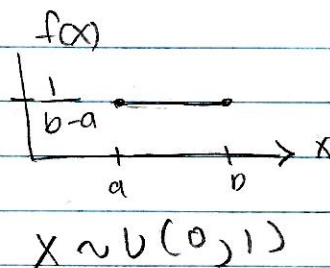 f(x)
1
b-a
x
a b
X ~ U(0,1)